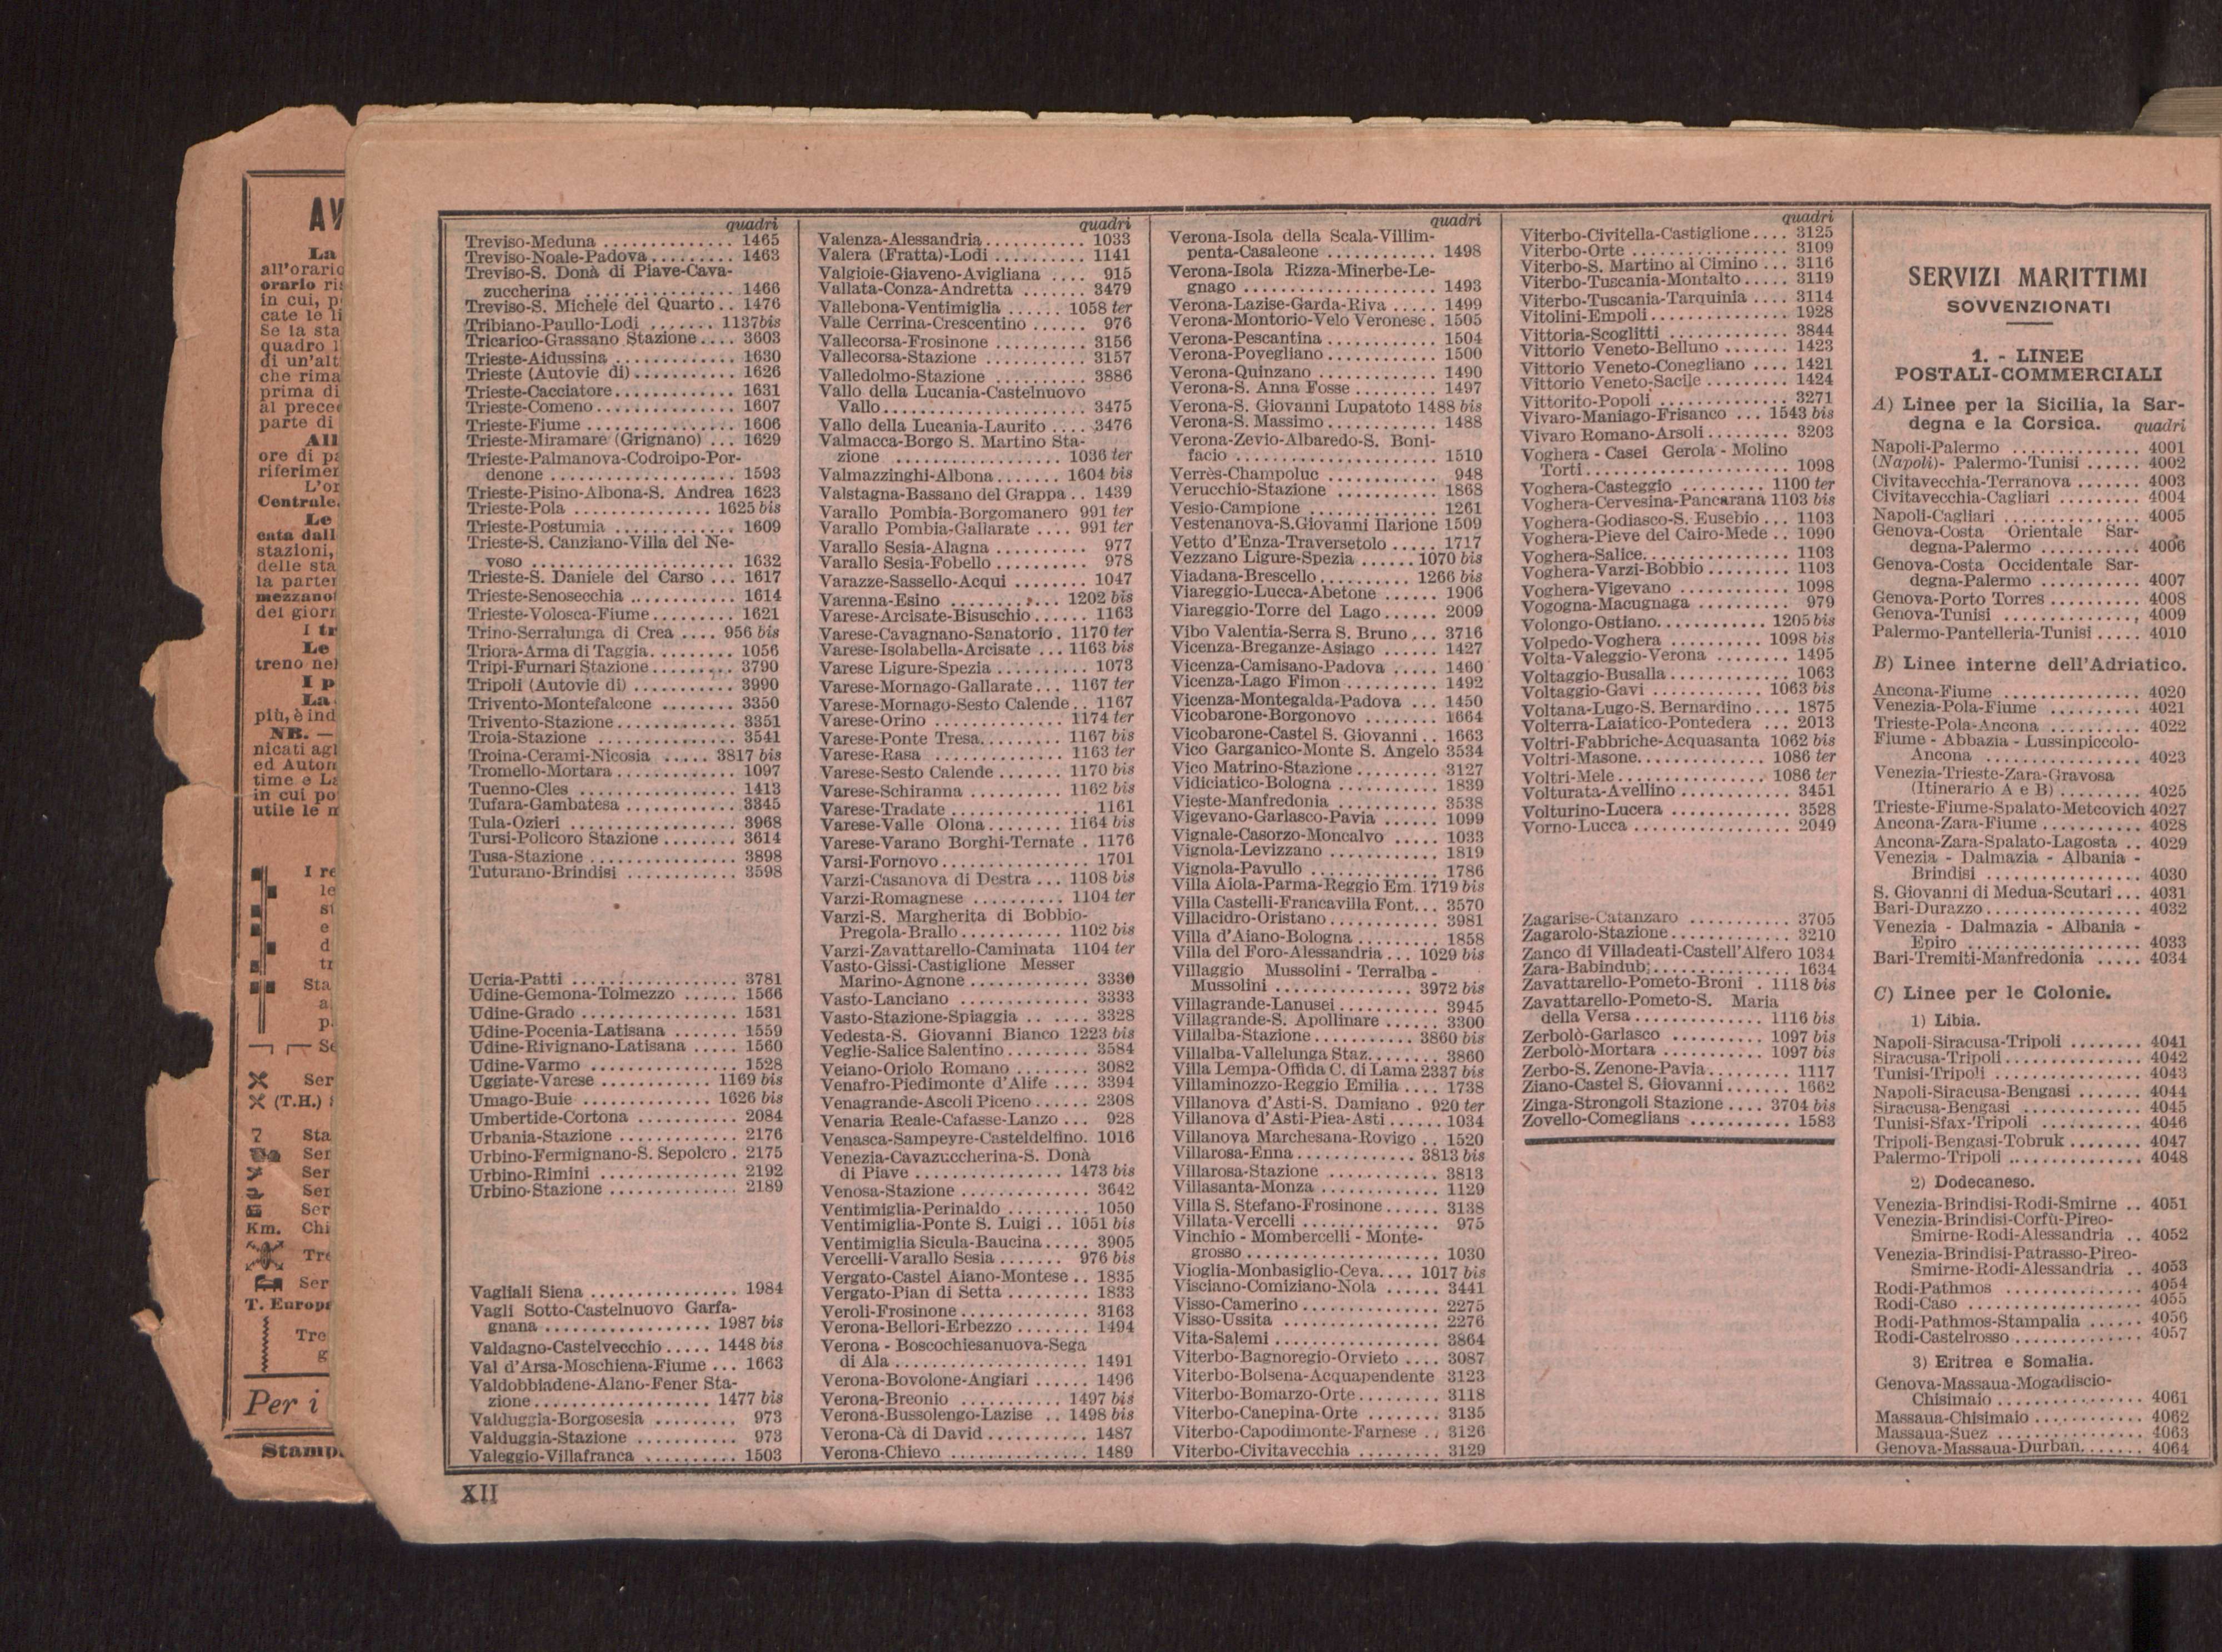 AV
La
all'orario
orario ris
in cui, p
cate le li
Se la sta
quadro l
di un'alt
che rima
prima di
al prece
parte di
All
ore di pa
riferimen
L'or
Centrale.
Le
cata dall
stazioni,
delle sta
la parte
mezzano
dei giorn
I tr
Le
treno nel
I p
La
più, è ind
NB. —
nicati agl
ed Auton
time e La
in cui po
utile le n
I re
le
si
e
d
tr
Sta
a
p
Se
Ser
(T.H.)
Sta
Ser
Ser
Ser
Ser
Km. Chi
Tre
Ser
T. Europ
Tre
g
Per i
Stamp
quadri
Treviso-Meduna .............. 1465
Treviso-Noale-Padova ......... 1463
Treviso-S. Donà di Piave-Cava-
zuccherina ................ 1466
Treviso-S. Michele del Quarto .. 1476
Tribiano-Paullo-Lodi ....... 1137bis
Tricarico-Grassano Stazione .... 3603
Trieste-Aidussina ............. 1630
Trieste (Autovie di) ........... 1626
Trieste-Cacciatore ............. 1631
Trieste-Comeno ............... 1607
Trieste-Fiume ................ 1606
Trieste-Miramare (Grignano) ... 1629
Trieste-Palmanova-Codroipo-Por-
denone .................... 1593
Trieste-Pisino-Albona-S. Andrea 1623
Trieste-Pola ............... 1625 bis
Trieste-Postumia ............. 1609
Trieste-S. Canziano-Villa del Ne-
voso ...................... 1632
Trieste-S. Daniele del Carso ... 1617
Trieste-Senosecchia ............ 1614
Trieste-Volosca-Fiume ......... 1621
Trino-Serralunga di Crea .... 956 bis
Triora-Arma di Taggia ......... 1056
Tripi-Furnari Stazione ......... 3790
Tripoli (Autovie di) ........... 3990
Trivento-Montefalcone ........ 3350
Trivento-Stazione ............. 3351
Troia-Stazione ............... 3541
Troina-Cerami-Nicosia ..... 3817 bis
Tromello-Mortara ............. 1097
Tuenno-Cles ................. 1413
Tufara-Gambatesa ............ 3345
Tula-Ozieri .................. 3968
Tursi-Policoro Stazione ........ 3614
Tusa-Stazione ................ 3898
Tuturano-Brindisi ............ 3598
Ucria-Patti .................. 3781
Udine-Gemona-Tolmezzo ...... 1566
Udine-Grado ................. 1531
Udine-Pocenia-Latisana ....... 1559
Udine-Rivignano-Latisana ..... 1560
Udine-Varmo ................ 1528
Uggiate-Varese ............ 1169 bis
Umago-Buie .............. 1626 bis
Umbertide-Cortona ............ 2084
Urbania-Stazione ............. 2176
Urbino-Fermignano-S. Sepolcro . 2175
Urbino-Rimini ............... 2192
Urbino-Stazione .............. 2189
Vagliali Siena ................ 1984
Vagli Sotto-Castelnuovo Garfa-
gnana .................. 1987 bis
Valdagno-Castelvecchio ..... 1448 bis
Val d'Arsa-Moschiena-Fiume ... 1663
Valdobbiadene-Alano-Fener Sta-
zione ................... 1477 bis
Valduggia-Borgosesia ......... 973
Valduggia-Stazione ........... 973
Valeggio-Villafranca .......... 1503
quadri
Valenza-Alessandria ........... 1033
Valera (Fratta)-Lodi .......... 1141
Valgioie-Giaveno-Avigliana .... 915
Vallata-Conza-Andretta ....... 3479
Vallebona-Ventimiglia ...... 1058 ter
Valle Cerrina-Crescentino ...... 976
Vallecorsa-Frosinone .......... 3156
Vallecorsa-Stazione ........... 3157
Valledolmo-Stazione .......... 3886
Vallo della Lucania-Castelnuovo
Vallo ...................... 3475
Vallo della Lucania-Laurito .... 3476
Valmacca-Borgo S. Martino Sta-
zione .................. 1036 ter
Valmazzinghi-Albona ....... 1604 bis
Valstagna-Bassano del Grappa .. 1439
Varallo Pombia-Borgomanero 991 ter
Varallo Pombia-Gallarate .... 991 ter
Varallo Sesia-Alagna .......... 977
Varallo Sesia-Fobello .......... 978
Varazze-Sassello-Acqui ........ 1047
Varenna-Esino ............ 1202 bis
Varese-Arcisate-Bisuschio ...... 1163
Varese-Cavagnano-Sanatorio . 1170 ter
Varese-Isolabella-Arcisate ... 1163 bis
Varese Ligure-Spezia .......... 1073
Varese-Mornago-Gallarate ... 1167 ter
Varese-Mornago-Sesto Calende .. 1167
Varese-Orino ............. 1174 ter
Varese-Ponte Tresa ......... 1167 bis
Varese-Rasa ............... 1163 ter
Varese-Sesto Calende ....... 1170 bis
Varese-Schiranna .......... 1162 bis
Varese-Tradate ............... 1161
Varese-Valle Olona ........ 1164 bis
Varese-Varano Borghi-Ternate . 1176
Varsi-Fornovo ................ 1701
Varzi-Casanova di Destra ... 1108 bis
Varzi-Romagnese .......... 1104 ter
Varzi-S. Margherita di Bobbio-
Pregola-Brallo ........... 1102 bis
Varzi-Zavattarello-Caminata 1104 ter
Vasto-Gissi-Castiglione Messer
Marino-Agnone ............ 3330
Vasto-Lanciano .............. 3333
Vasto-Stazione-Spiaggia ....... 3328
Vedesta-S. Giovanni Bianco 1223 bis
Veglie-Salice Salentino ......... 3584
Veiano-Oriolo Romano ........ 3082
Venafro-Piedimonte d'Alife .... 3394
Venagrande-Ascoli Piceno ...... 2308
Venaria Reale-Cafasse-Lanzo ... 928
Venasca-Sampeyre-Casteldelfino. 1016
Venezia-Cavazuccherina-S. Donà
di Piave ................ 1473 bis
Venosa-Stazione .............. 3642
Ventimiglia-Perinaldo ......... 1050
Ventimiglia-Ponte S. Luigi .. 1051 bis
Ventimiglia Sicula-Baucina ..... 3905
Vercelli-Varallo Sesia ....... 976 bis
Vergato-Castel Aiano-Montese .. 1835
Vergato-Pian di Setta ......... 1833
Veroli-Frosinone .............. 3163
Verona-Bellori-Erbezzo ........ 1494
Verona - Boscochiesanuova-Sega
di Ala ..................... 1491
Verona-Bovolone-Angiari ...... 1496
Verona-Breonio ........... 1497 bis
Verona-Bussolengo-Lazise .. 1498 bis
Verona-Cà di David ........... 1487
Verona-Chievo ............... 1489
quadri
Verona-Isola della Scala-Villim-
penta-Casaleone ............ 1498
Verona-Isola Rizza-Minerbe-Le-
gnago ..................... 1493
Verona-Lazise-Garda-Riva ..... 1499
Verona-Montorio-Velo Veronese . 1505
Verona-Pescantina ............ 1504
Verona-Povegliano ............ 1500
Verona-Quinzano ............. 1490
Verona-S. Anna Fosse ......... 1497
Verona-S. Giovanni Lupatoto 1488 bis
Verona-S. Massimo ............ 1488
Verona-Zevio-Albaredo-S. Boni-
facio ...................... 1510
Verrès-Champoluc ............ 948
Verucchio-Stazione ........... 1868
Vesio-Campione .............. 1261
Vestenanova-S.Giovanni Ilarione 1509
Vetto d'Enza-Traversetolo ..... 1717
Vezzano Ligure-Spezia ...... 1070 bis
Viadana-Brescello .......... 1266 bis
Viareggio-Lucca-Abetone ...... 1906
Viareggio-Torre del Lago ...... 2009
Vibo Valentia-Serra S. Bruno ... 3716
Vicenza-Breganze-Asiago ...... 1427
Vicenza-Camisano-Padova ..... 1460
Vicenza-Lago Fimon .......... 1492
Vicenza-Montegalda-Padova ... 1450
Vicobarone-Borgonovo ........ 1664
Vicobarone-Castel S. Giovanni .. 1663
Vico Garganico-Monte S. Angelo 3534
Vico Matrino-Stazione ......... 3127
Vidiciatico-Bologna ........... 1839
Vieste-Manfredonia ........... 3538
Vigevano-Garlasco-Pavia ...... 1099
Vignale-Casorzo-Moncalvo ..... 1033
Vignola-Levizzano ............ 1819
Vignola-Pavullo .............. 1786
Villa Aiola-Parma-Reggio Em. 1719 bis
Villa Castelli-Francavilla Font... 3570
Villacidro-Oristano ............ 3981
Villa d'Aiano-Bologna ......... 1858
Villa del Foro-Alessandria ... 1029 bis
Villaggio Mussolini - Terralba -
Mussolini ............... 3972 bis
Villagrande-Lanusei ........... 3945
Villagrande-S. Apollinare ...... 3300
Villalba-Stazione ........... 3860 bis
Villalba-Vallelunga Staz. ....... 3860
Villa Lempa-Offida C. di Lama 2337 bis
Villaminozzo-Reggio Emilia .... 1738
Villanova d'Asti-S. Damiano . 920 ter
Villanova d'Asti-Piea-Asti ...... 1034
Villanova Marchesana-Rovigo .. 1520
Villarosa-Enna ............ 3813 bis
Villarosa-Stazione ............ 3813
Villasanta-Monza ............. 1129
Villa S. Stefano-Frosinone ...... 3138
Villata-Vercelli ............... 975
Vinchio - Mombercelli - Monte-
grosso ..................... 1030
Vioglia-Monbasiglio-Ceva .... 1017 bis
Visciano-Comiziano-Nola ...... 3441
Visso-Camerino ............... 2275
Visso-Ussita ................. 2276
Vita-Salemi .................. 3864
Viterbo-Bagnoregio-Orvieto .... 3087
Viterbo-Bolsena-Acquapendente 3123
Viterbo-Bomarzo-Orte ......... 3118
Viterbo-Canepina-Orte ........ 3135
Viterbo-Capodimonte-Farnese .. 3126
Viterbo-Civitavecchia ......... 3129
quadri
Viterbo-Civitella-Castiglione .... 3125
Viterbo-Orte ................. 3109
Viterbo-S. Martino al Cimino ... 3116
Viterbo-Tuscania-Montalto ..... 3119
Viterbo-Tuscania-Tarquinia .... 3114
Vitolini-Empoli ............... 1928
Vittoria-Scoglitti ............. 3844
Vittorio Veneto-Belluno ....... 1423
Vittorio Veneto-Conegliano .... 1421
Vittorio Veneto-Sacile ......... 1424
Vittorito-Popoli .............. 3271
Vivaro-Maniago-Frisanco ... 1543 bis
Vivaro Romano-Arsoli ......... 3203
Voghera - Casei Gerola - Molino
Torti ...................... 1098
Voghera-Casteggio ......... 1100 ter
Voghera-Cervesina-Pancarana 1103 bis
Voghera-Godiasco-S. Eusebio ... 1103
Voghera-Pieve del Cairo-Mede .. 1090
Voghera-Salice ............... 1103
Voghera-Varzi-Bobbio ......... 1103
Voghera-Vigevano ............ 1098
Vogogna-Macugnaga .......... 979
Volongo-Ostiano ............ 1205 bis
Volpedo-Voghera .......... 1098 bis
Volta-Valeggio-Verona ........ 1495
Voltaggio-Busalla ............. 1063
Voltaggio-Gavi ............ 1063 bis
Voltana-Lugo-S. Bernardino .... 1875
Volterra-Laiatico-Pontedera ... 2013
Voltri-Fabbriche-Acquasanta 1062 bis
Voltri-Masone ............. 1086 ter
Voltri-Mele ............... 1086 ter
Volturata-Avellino ............ 3451
Volturino-Lucera ............. 3528
Vorno-Lucca ................. 2049
Zagarise-Catanzaro ........... 3705
Zagarolo-Stazione ............. 3210
Zanco di Villadeati-Castell'Alfero 1034
Zara-Babindub ............... 1634
Zavattarello-Pometo-Broni . 1118 bis
Zavattarello-Pometo-S. Maria
della Versa ............. 1116 bis
Zerbolò-Garlasco .......... 1097 bis
Zerbolò-Mortara ........... 1097 bis
Zerbo-S. Zenone-Pavia ......... 1117
Ziano-Castel S. Giovanni ....... 1662
Zinga-Strongoli Stazione .... 3704 bis
Zovello-Comeglians ........... 1583
SERVIZI MARITTIMI
SOVVENZIONATI
1. - LINEE
POSTALI-COMMERCIALI
A) Linee per la Sicilia, la Sar-
degna e la Corsica. quadri
Napoli-Palermo .............. 4001
(Napoli)- Palermo-Tunisi ...... 4002
Civitavecchia-Terranova ....... 4003
Civitavecchia-Cagliari ......... 4004
Napoli-Cagliari ............... 4005
Genova-Costa Orientale Sar-
degna-Palermo ........... 4006
Genova-Costa Occidentale Sar-
degna-Palermo ........... 4007
Genova-Porto Torres .......... 4008
Genova-Tunisi ............... 4009
Palermo-Pantelleria-Tunisi ..... 4010
B) Linee interne dell'Adriatico.
Ancona-Fiume ............... 4020
Venezia-Pola-Fiume .......... 4021
Trieste-Pola-Ancona .......... 4022
Fiume - Abbazia - Lussinpiccolo-
Ancona ................... 4023
Venezia-Trieste-Zara-Gravosa
(Itinerario A e B) ......... 4025
Trieste-Fiume-Spalato-Metcovich 4027
Ancona-Zara-Fiume ........... 4028
Ancona-Zara-Spalato-Lagosta .. 4029
Venezia - Dalmazia - Albania -
Brindisi .................. 4030
S. Giovanni di Medua-Scutari ... 4031
Bari-Durazzo ................. 4032
Venezia - Dalmazia - Albania -
Epiro .................... 4033
Bari-Tremiti-Manfredonia ..... 4034
C) Linee per le Colonie.
1) Libia.
Napoli-Siracusa-Tripoli ........ 4041
Siracusa-Tripoli ............... 4042
Tunisi-Tripoli ................ 4043
Napoli-Siracusa-Bengasi ....... 4044
Siracusa-Bengasi ............. 4045
Tunisi-Sfax-Tripoli ........... 4046
Tripoli-Bengasi-Tobruk ........ 4047
Palermo-Tripoli .............. 4048
2) Dodecaneso.
Venezia-Brindisi-Rodi-Smirne .. 4051
Venezia-Brindisi-Corfù-Pireo-
Smirne-Rodi-Alessandria .. 4052
Venezia-Brindisi-Patrasso-Pireo-
Smirne-Rodi-Alessandria .. 4053
Rodi-Pathmos ............... 4054
Rodi-Caso ................... 4055
Rodi-Pathmos-Stampalia ...... 4056
Rodi-Castelrosso .............. 4057
3) Eritrea e Somalia.
Genova-Massaua-Mogadiscio-
Chisimaio ................ 4061
Massaua-Chisimaio ............ 4062
Massaua-Suez ................ 4063
Genova-Massaua-Durban ....... 4064
XII